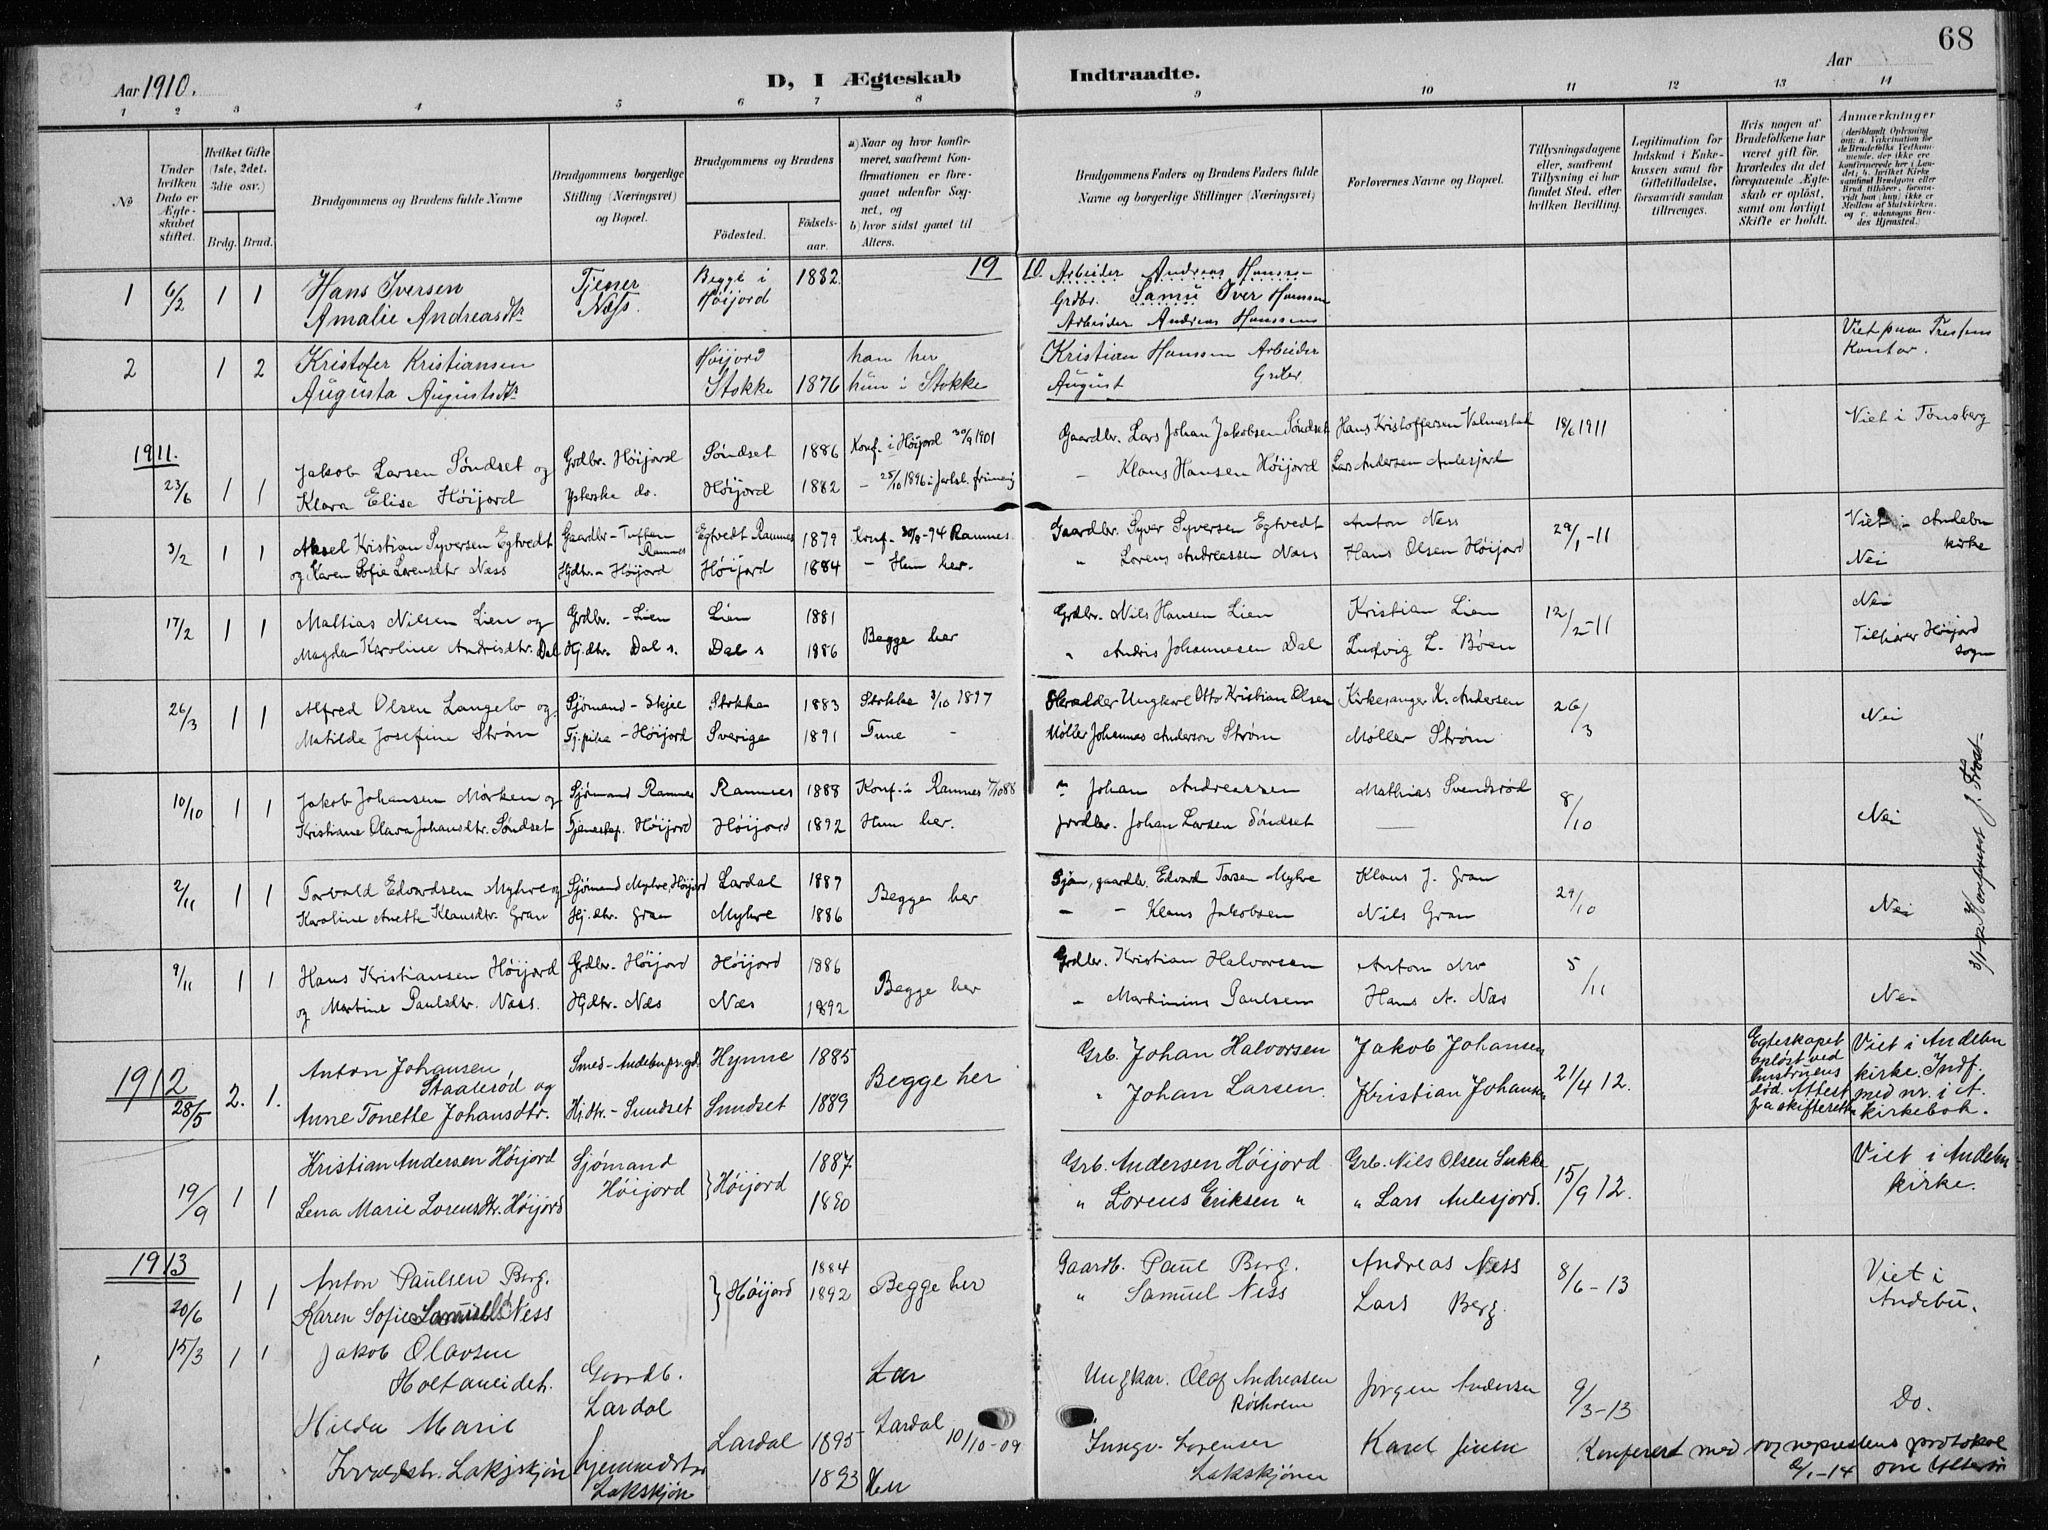 68
Aar 1910.
D, I Ægteskab Indtraadte.
Aar
1 2 3 4 5 6 7 8 9 10 11 12 13 14
No
Under hvilken Dato er Ægteskabet stiftet.
Hvilket Gifte (1ste, 2det, 3die osv.)
Brdg. Brud.
Brudgommens og Brudens fulde Navne
Brudgommens borgerlige Stilling (Næringsvei) og Bopæl.
Brudgommens og Brudens
Fødested. Fødselsaar.
a) Naar og hvor konfirmeret, saafremt Konfirmationen er foregaaet udenfor Sognet, og
b) hvor sidst gaaet til Alters.
Brudgommens Faders og Brudens Faders fulde Navne og borgerlige Stillinger (Næringsvei)
Forlovernes Navne og Bopæl.
Tillysningsdagene eller, saafremt Tillysning ei har fundet Sted, efter hvilken Bevilling.
Legitimation for Indskud i Enkekassen samt for Giftetilladelse, forsaavidt saadan tiltrænges.
Hvis nogen af Brudefolkene har været gift før, hvorledes da det foregaaende Ægteskab er opløst, samt om lovligt Skifte er holdt.
Anmærkninger
19 10.
1 6/2 1 1 Hans Iversen Tjener Begge i 1882 Arbeider Andreas Hanssen
Amalie Andreasdtr. Næss. Høijord Grdbr. Samu Iver Hanssen
Arbeider Andreas Hanssens
2 1 2 Kristofer Kristiansen Høijord han her Kristian Hanssen Arbeider Viet paa
Kontor.
Augusta Augustsdtr. Stokke 1876 hun i Stokke August Grdbr
1911.
23/6 1 1 Jakob Larsen Søndset og Grdbr. Høijord Søndset 1886 Konf. i Høijord 30/9 1901 Gaardbr. Lars Johan Jakobsen Søndset Hans Kristoffersen Valmestad 18/6 1911 Viet i Tønsberg
Klara Elise Høijord do. Høijord 1882 - 25/10 1896 i Jarlsb. Klaus Hansen Høijord Lars Andersen Aulesjord
3/2 1 1 Aksel Kristian Syversen Egtvedt Gaardbr - Tuften Ramnes Egtvedt Ramnes 1879 Konf. 30/9-94 Ramnes. Gaardbr. Syver Syversen Egtvedt Anton Ness 29/1-11 Viet i Andebu kirke
og Karen Sofie Lorensdtr Næss Hjdtr. - Høijord Høijord 1884 - Hun her. " Lorens Andreassen Næss Hans Olsen Høijord Nei
17/2 1 1 Mathias Nilsen Lien og Grdbr. - Lien Lien 1881 Begge her Grdbr. Nils Hansen Lien Kristian Lien 12/2-11 Nei
Magda Karoline Andrisdtr. Dal Hj.dtr. Dal s. Dal s 1886 " Andris Johannesen Dal Ludvig L. Bøen Tilhører Høijord sogn
26/3 1 1 Alfred Olsen Langelv og Sjømand - Skjee Stokke 1883 Stokke 3/10 1897 Skrædder Ungkarl Otto Kristian Olsen Kirkesanger K. Andersen 26/3 Nei
Matilde Josefine Strøm Tj.pike - Høijord Sverige 1891 Tune - Møller Johannes Anderson Strøm Møller Strøm
10/10 1 1 Jakob Johansen Mørken og Sjømand Ramnes Ramnes 1888 Konf. i Ramnes " Johan Andreassen Mathias Svendsrød 8/10 Nei
Kristiane Olava Johansdtr. Søndset Tjenestep. Høijord Høijord 1892 Hun her. Johan Larsen Søndset
2/11 1 1 Torvald Edvardsen Myhre og Sjømand Myhre, Høijord Lardal 1887 Begge her Sjøm, gaardbr. Edvard Torsen Myhre Klaus J. Gran 29/10 Nei
Karoline Anette Klausdtr. Gran Hj.dtr. Gran Myhre 1886 - - Klaus Jakobsen Nils Gran
9/11 1 1 Hans Kristiansen Høijord Grdbr. Høijord Høijord 1886 Begge her Grdbr. Kristian Halvorsen Anton Mo 5/11 Nei
og Martine Paulsdtr. Næss. Hjdtr. - Næs Næs 1892 " Martinius Paulsen Hans A. Næs
3/1-12 Konfereret J. Trost-
1912
28/5 2. 1. Anton Johansen Smed - Andebu pr.gd. Hynne 1885 Begge her Grb. Johan Halvorsen Jakob Johansen 21/4 12. Egteskapet opløst ved hustruens død. Attest fra skifteretten Viet i Andebu kirke. Indf. med nr. i A. kirkebok.
Staalerød og
Anne Tonette Johansdtr. Hjdtr. - Sundset Sundset 1889 " Johan Larsen. Kristian Johansen
19/9 1 1 Kristian Andersen Høijord Sjømand Høijord } Høijord 1887. Grb. Andersen Høijord Grb. Nils Olsen Sukke 15/9 12. Viet i Andebu kirke.
Lena Marie Lorensdtr. Høijord 1890 " Lorens Eriksen " " Lars Aulesjord.
1913
20/6 1 1 Anton Paulsen Berg. } Høijord 1884 Begge her Gaardb. Paul Berg. Andreas Ness 8/6-13 Viet i Andebu.
Karen Sofie Ness 1892 " Samuel Ness Lars Berg.
15/3 1 1 Jakob Olavsen Gaardb. Lardal Ungkar. Olaf Andreasen Jørgen Andersen 9/3-13 Do.
Hilda Marie Lardal 1895 Lardal 10/10-09
Lakskjøn hjemmedtr Lakskjøn 1893 Lakskjønn Karl
Konfereret med sogneprestens protokol
2/1-14